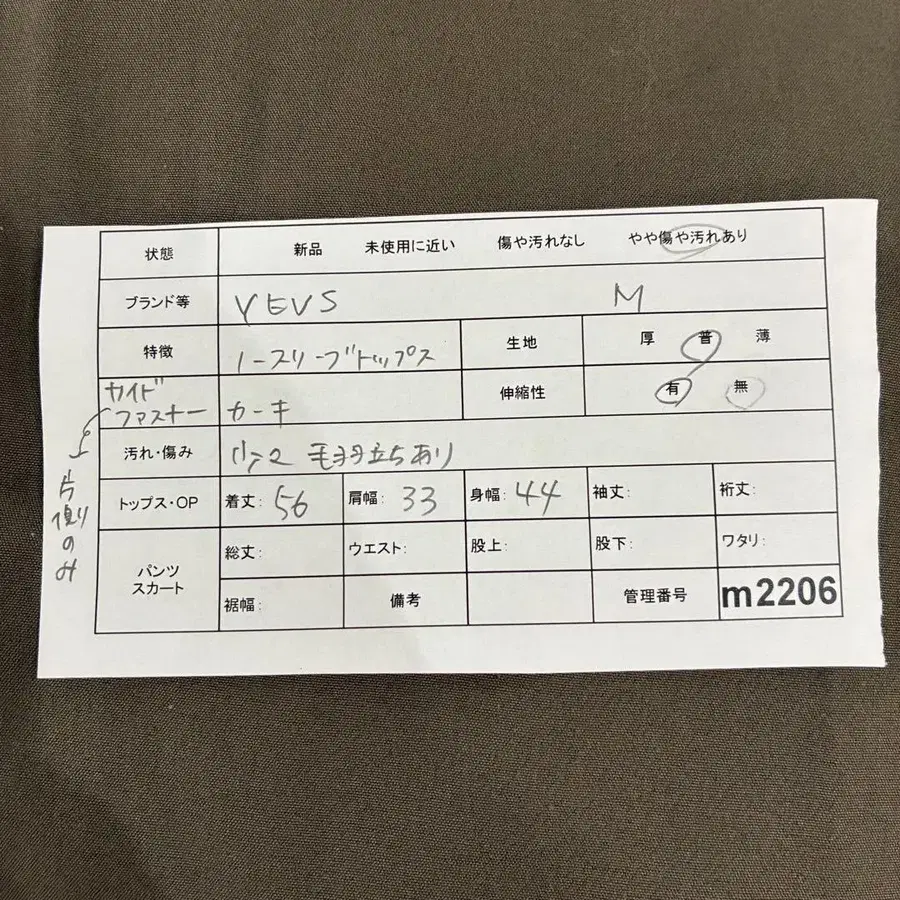 状態 新品 未使用に近い 傷や汚れなし やや傷や汚れあり
ブランド等 YEVS M
特徴 ノースリーブトップス 生地 厚 普 薄
サイドファスナー カーキ 伸縮性 有 無
片側のみ
汚れ・傷み 毛羽立ちあり
トップス・OP 着丈: 56 肩幅: 33 身幅: 44 袖丈: 裄丈:
パンツ スカート 総丈: ウエスト: 股上: 股下: ワタリ:
裾幅: 備考 管理番号 m2206